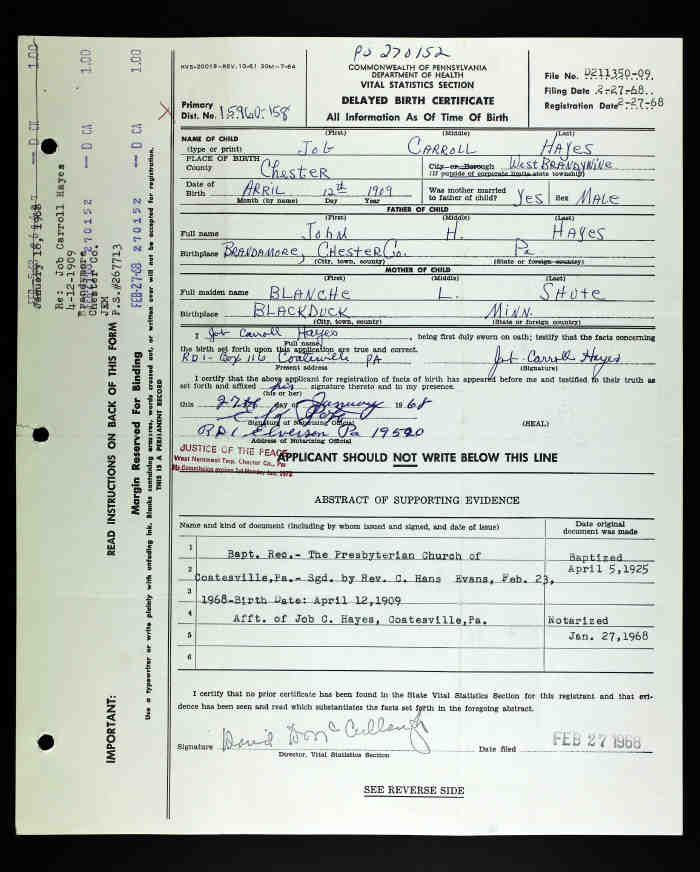 PS 270152
HVS-20019-REV. 10-61 30M-7-64
COMMONWEALTH OF PENNSYLVANIA
DEPARTMENT OF HEALTH
VITAL STATISTICS SECTION
DELAYED BIRTH CERTIFICATE
All Information As Of Time Of Birth
File No. 0211350-09.
Filing Date 2-27-68..
Registration Date 2-27-68
Primary
Dist. No. 15960-158
NAME OF CHILD (First) (Middle) (Last)
(type or print) Job CARROLL HAYES
PLACE OF BIRTH
County Chester City or Borough West BRANDYWINE
(If outside of corporate limits state township)
Date of
Birth APRIL 12th 1909 Was mother married
to father of child? Yes Sex MALE
Month (by name) Day Year
FATHER OF CHILD
(First) (Middle) (Last)
Full name John H. HAYES
Birthplace BRANDAMORE, CHESTER Co. Pa
(City, town, county) (State or foreign country)
MOTHER OF CHILD
(First) (Middle) (Last)
Full maiden name BLANCHE L. SHUTE
Birthplace BLACKDUCK MINN.
(City, town, county) (State or foreign country)
I Job Carroll Hayes, being first duly sworn on oath; testify that the facts concerning
Full name
the birth set forth upon this application are true and correct.
RD1- Box 116 Coatesville PA Job Carroll Hayes
Present address (Signature)
I certify that the above applicant for registration of facts of birth has appeared before me and testified to their truth as
set forth and affixed his signature thereto and in my presence.
(his or her)
this 27th day of January 1968
Signature of Notarizing Official (SEAL)
RD1 Elverson Pa 19520
Address of Notarizing Official
JUSTICE OF THE PEACE
West Nantmeal Twp. Chester Co., Pa
My Commission expires 1st Monday Jan. 1972
APPLICANT SHOULD NOT WRITE BELOW THIS LINE
ABSTRACT OF SUPPORTING EVIDENCE
Name and kind of document (including by whom issued and signed, and date of issue) Date original
document was made
1 Bapt. Rec.- The Presbyterian Church of Baptized
2 Coatesville,Pa.- Sgd. by Rev. C. Hans Evans, Feb. 23, April 5,1925
3 1968-Birth Date: April 12,1909
4 Afft. of Job C. Hayes, Coatesville,Pa. Notarized
5 Jan. 27,1968
6
I certify that no prior certificate has been found in the State Vital Statistics Section for this registrant and that evi-
dence has been seen and read which substantiates the facts set forth in the foregoing abstract.
Signature David D McCullough Date filed FEB 27 1968
Director, Vital Statistics Section
SEE REVERSE SIDE
January 18, 1968
Re: Job Carroll Hayes
4-12-1909
Brandamore
Chester Co.
JEM
P.S.#267713
270152 — D CA 1.00
FEB-27-68 270152 — D CA 1.00
IMPORTANT: READ INSTRUCTIONS ON BACK OF THIS FORM
Margin Reserved For Binding
Use a typewriter or write plainly with unfading ink. Blanks containing erasures, words crossed out, or written over will not be accepted for registration.
THIS IS A PERMANENT RECORD